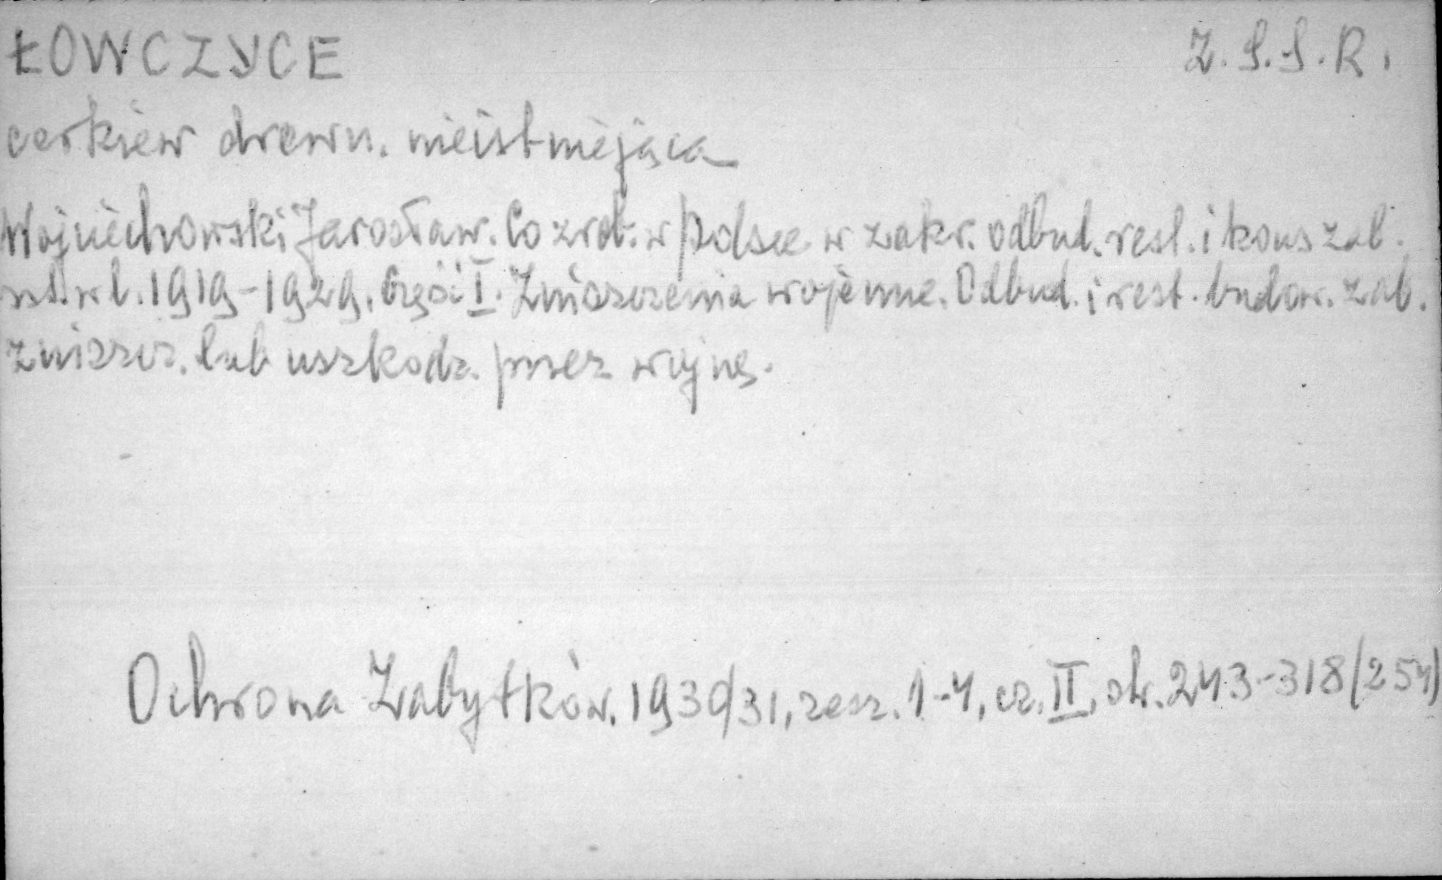 ŁOWCZYCE Z.S.S.R.
cerkiew drewn. nieistniejąca
Wojciechowski Jarosław. Co zrob. w Polsce w zakr. odbud. rest. i kons zab.
szt. w l. 1919-1929. Część I. Zniszczenia wojenne. Odbud. i rest. budow. zab.
zniszcz. lub uszkodz. przez wojnę.
Ochrona Zabytków, 1930/31, zesz. 1-4, cz. II, str. 243-318 (254)